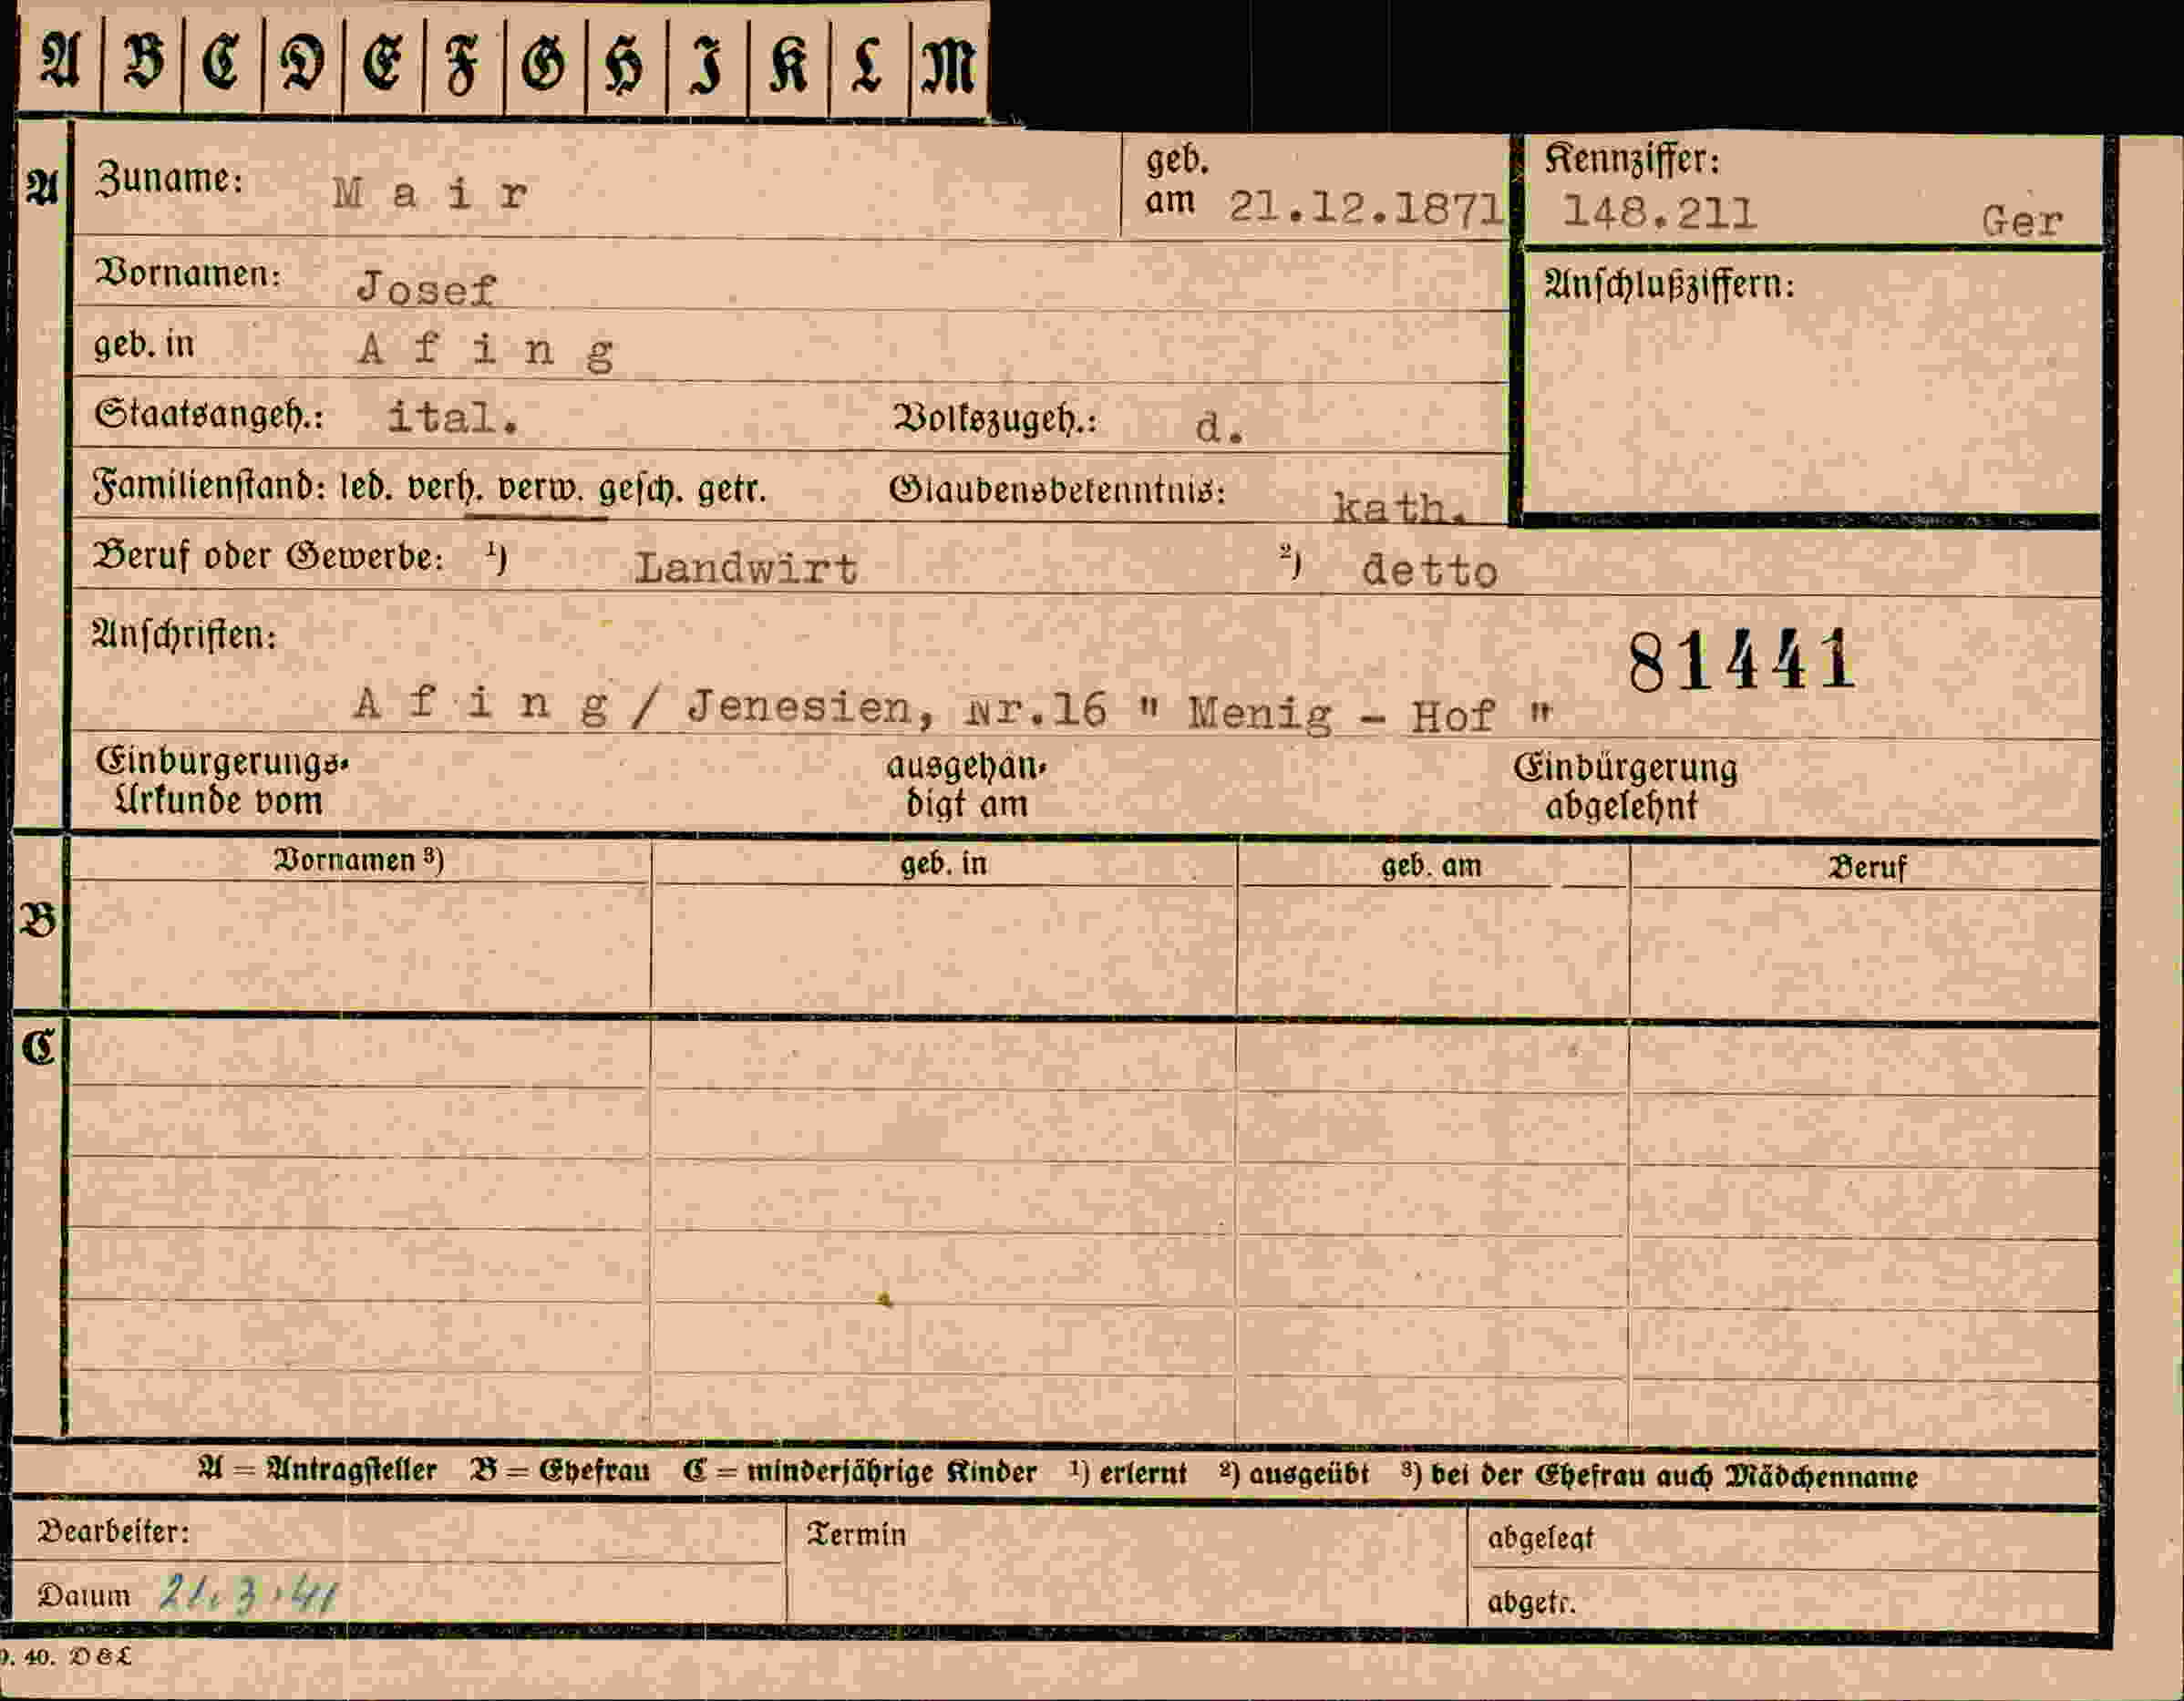 A B C D E F G H I K L M
A Zuname: M a i r geb. am 21.12.1871 Kennziffer: 148.211 Ger
Vornamen: Josef Anschlußziffern:
geb. in A f i n g
Staatsangeh.: ital. Volkszugeh.: d.
Familienstand: led. verh. verw. gesch. getr. Glaubensbekenntnis: kath.
Beruf oder Gewerbe: 1) Landwirt 2) detto
Anschriften: 81441
A f i n g / Jenesien, Nr.16 " Menig - Hof "
Einbürgerungs- ausgehän- Einbürgerung
Urkunde vom digt am abgelehnt
Vornamen 3) geb. in geb. am Beruf
B
C
A = Antragsteller B = Ehefrau C = minderjährige Kinder 1) erlernt 2) ausgeübt 3) bei der Ehefrau auch Mädchenname
Bearbeiter: Termin abgelegt
Datum 21.3.41 abgetr.
9. 40. D & L